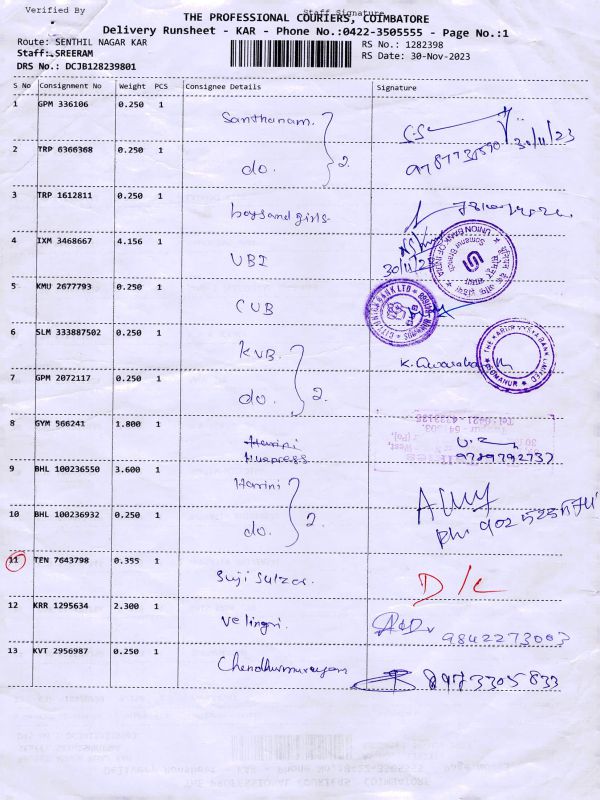 Verified By
Staff Signature
THE PROFESSIONAL COURIERS, COIMBATORE
Delivery Runsheet - KAR - Phone No.:0422-3505555 - Page No.:1
Route: SENTHIL NAGAR KAR
RS No.: 1282398
Staff: SREERAM
RS Date: 30-Nov-2023
DRS No.: DCJB128239801
S No Consignment No Weight PCS Consignee Details Signature
1 GPM 336106 0.250 1 Santhanam. 30/11/23
2 TRP 6366368 0.250 1 do. 2.
3 TRP 1612811 0.250 1 boysandgirls
4 IXM 3468667 4.156 1 UBI
UNION BANK OF INDIA
Somanur Branch
5 KMU 2677793 0.250 1 CUB
CITY UNION BANK LTD
6 SLM 333887502 0.250 1 KVB.
THE KARUR VYSYA BANK LIMITED
SOMANUR
7 GPM 2072117 0.250 1 do. 2.
8 GYM 566241 1.800 1 Harrini
9789792737
9 BHL 100236550 3.600 1 Harrini
10 BHL 100236932 0.250 1 do. 2.
11 TEN 7643798 0.355 1 Suji Sulzer. D/L
12 KRR 1295634 2.300 1 Velingri. 9842273003
13 KVT 2956987 0.250 1 8973305833